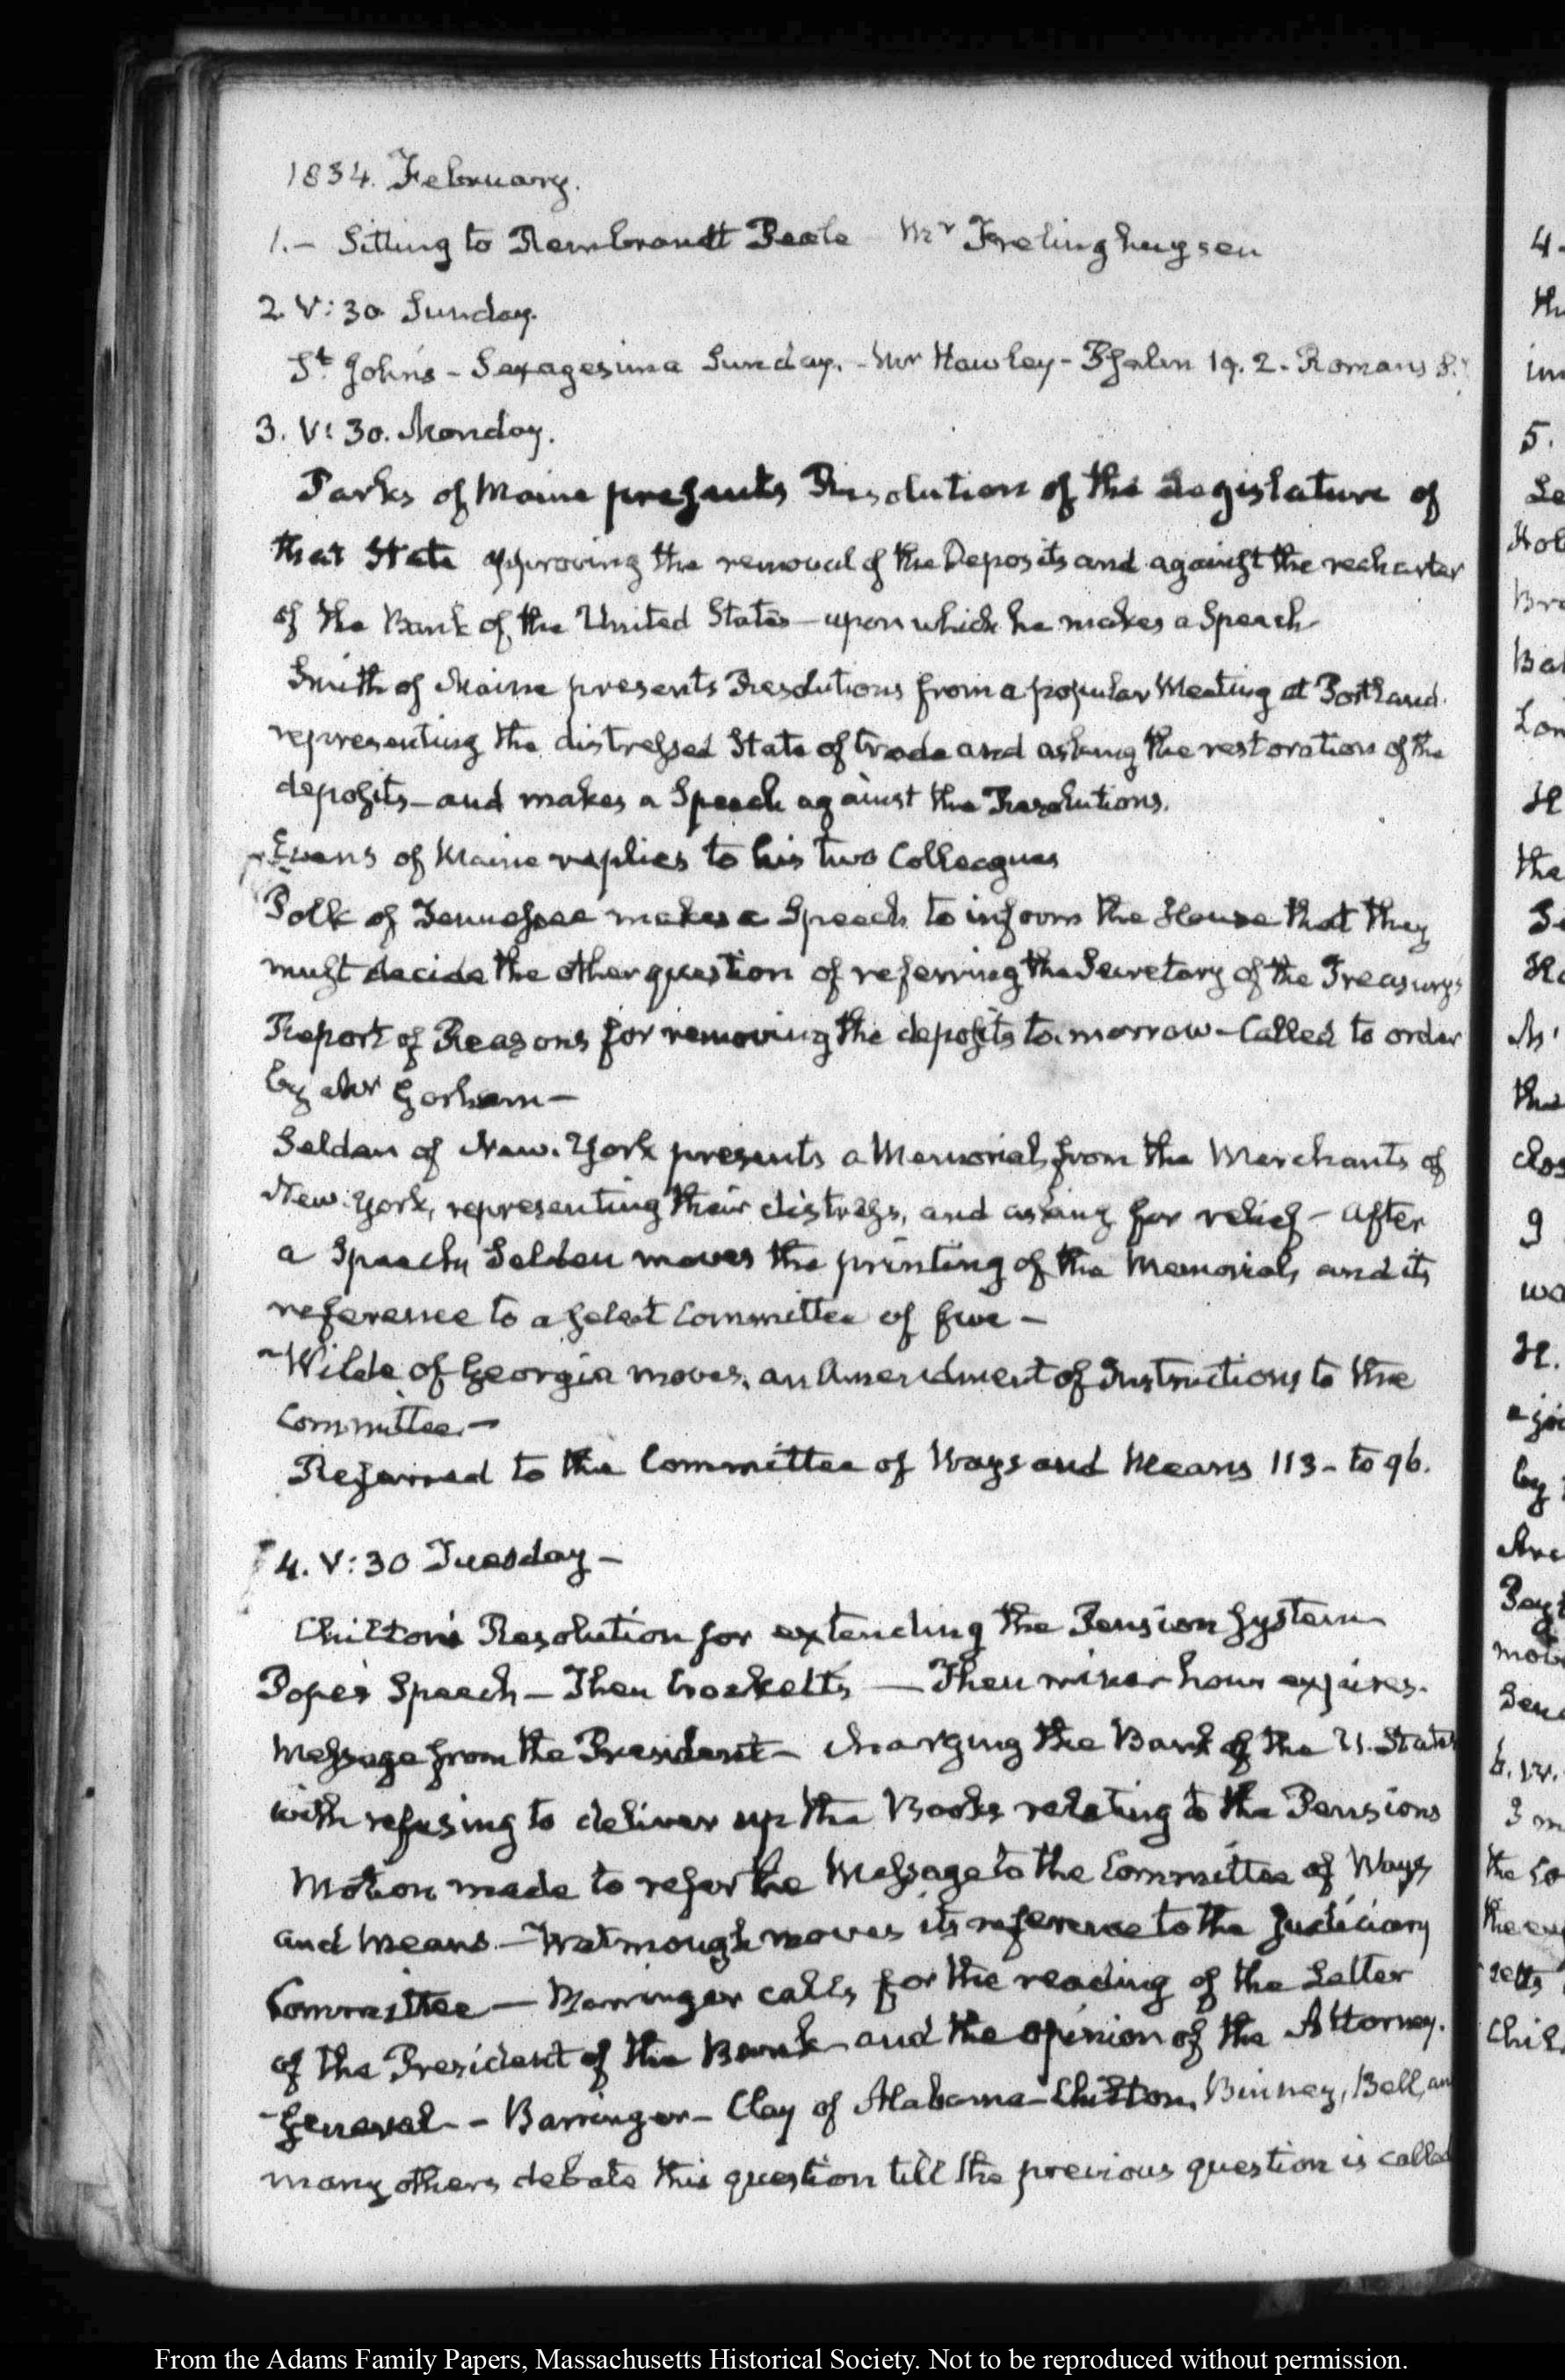 1834. February.
1.— Sitting to Rembrandt Peale Mr Frelinghuysen
2. V:30 Sunday.
St. John's — Sexagesima Sunday. — Mr Hawley — Psalm 19. 2. Romans 8.
3. V:30. Monday.
Parks of Maine presents Resolution of the Legislature of
that State approving the removal of the Deposits and against the recharter
of the Bank of the United States — upon which he makes a Speech
Smith of Maine presents Resolutions from a popular Meeting at Portland
representing the distressed State of trade and asking the restoration of the
deposits — and makes a Speech against the Resolutions.
Evans of Maine replies to his two Colleagues
Polk of Tennessee makes a Speech to inform the House that they
must decide the other question of referring the Secretary of the Treasury's
Report of Reasons for removing the deposits to-morrow — Called to order
by Mr Gorham —
Selden of New-York presents a Memorial from the Merchants of
New York, representing their distress, and asking for relief — After
a Speech Selden moves the printing of the Memorial, and its
reference to a select Committee of five —
Wilde of Georgia moves, an Amendment of Instructions to the
Committee —
Referred to the Committee of Ways and Means 113 — to 96.
4. V:30 Tuesday —
Chilton's Resolution for extending the Pension System
Pope's Speech — Then Crockett's — Then mixer hour expires.
Message from the President — charging the Bank of the U. States
with refusing to deliver up the Books relating to the Pensions
Motion made to refer the Message to the Committee of Ways
and Means — Watmough moves its reference to the Judiciary
Committee — Barringer calls for the reading of the Letter
of the President of the Bank and the opinion of the Attorney-
General — Barringer — Clay of Alabama — Chilton, Binney, Bell, an
many others debate this question till the previous question is called
From the Adams Family Papers, Massachusetts Historical Society. Not to be reproduced without permission.